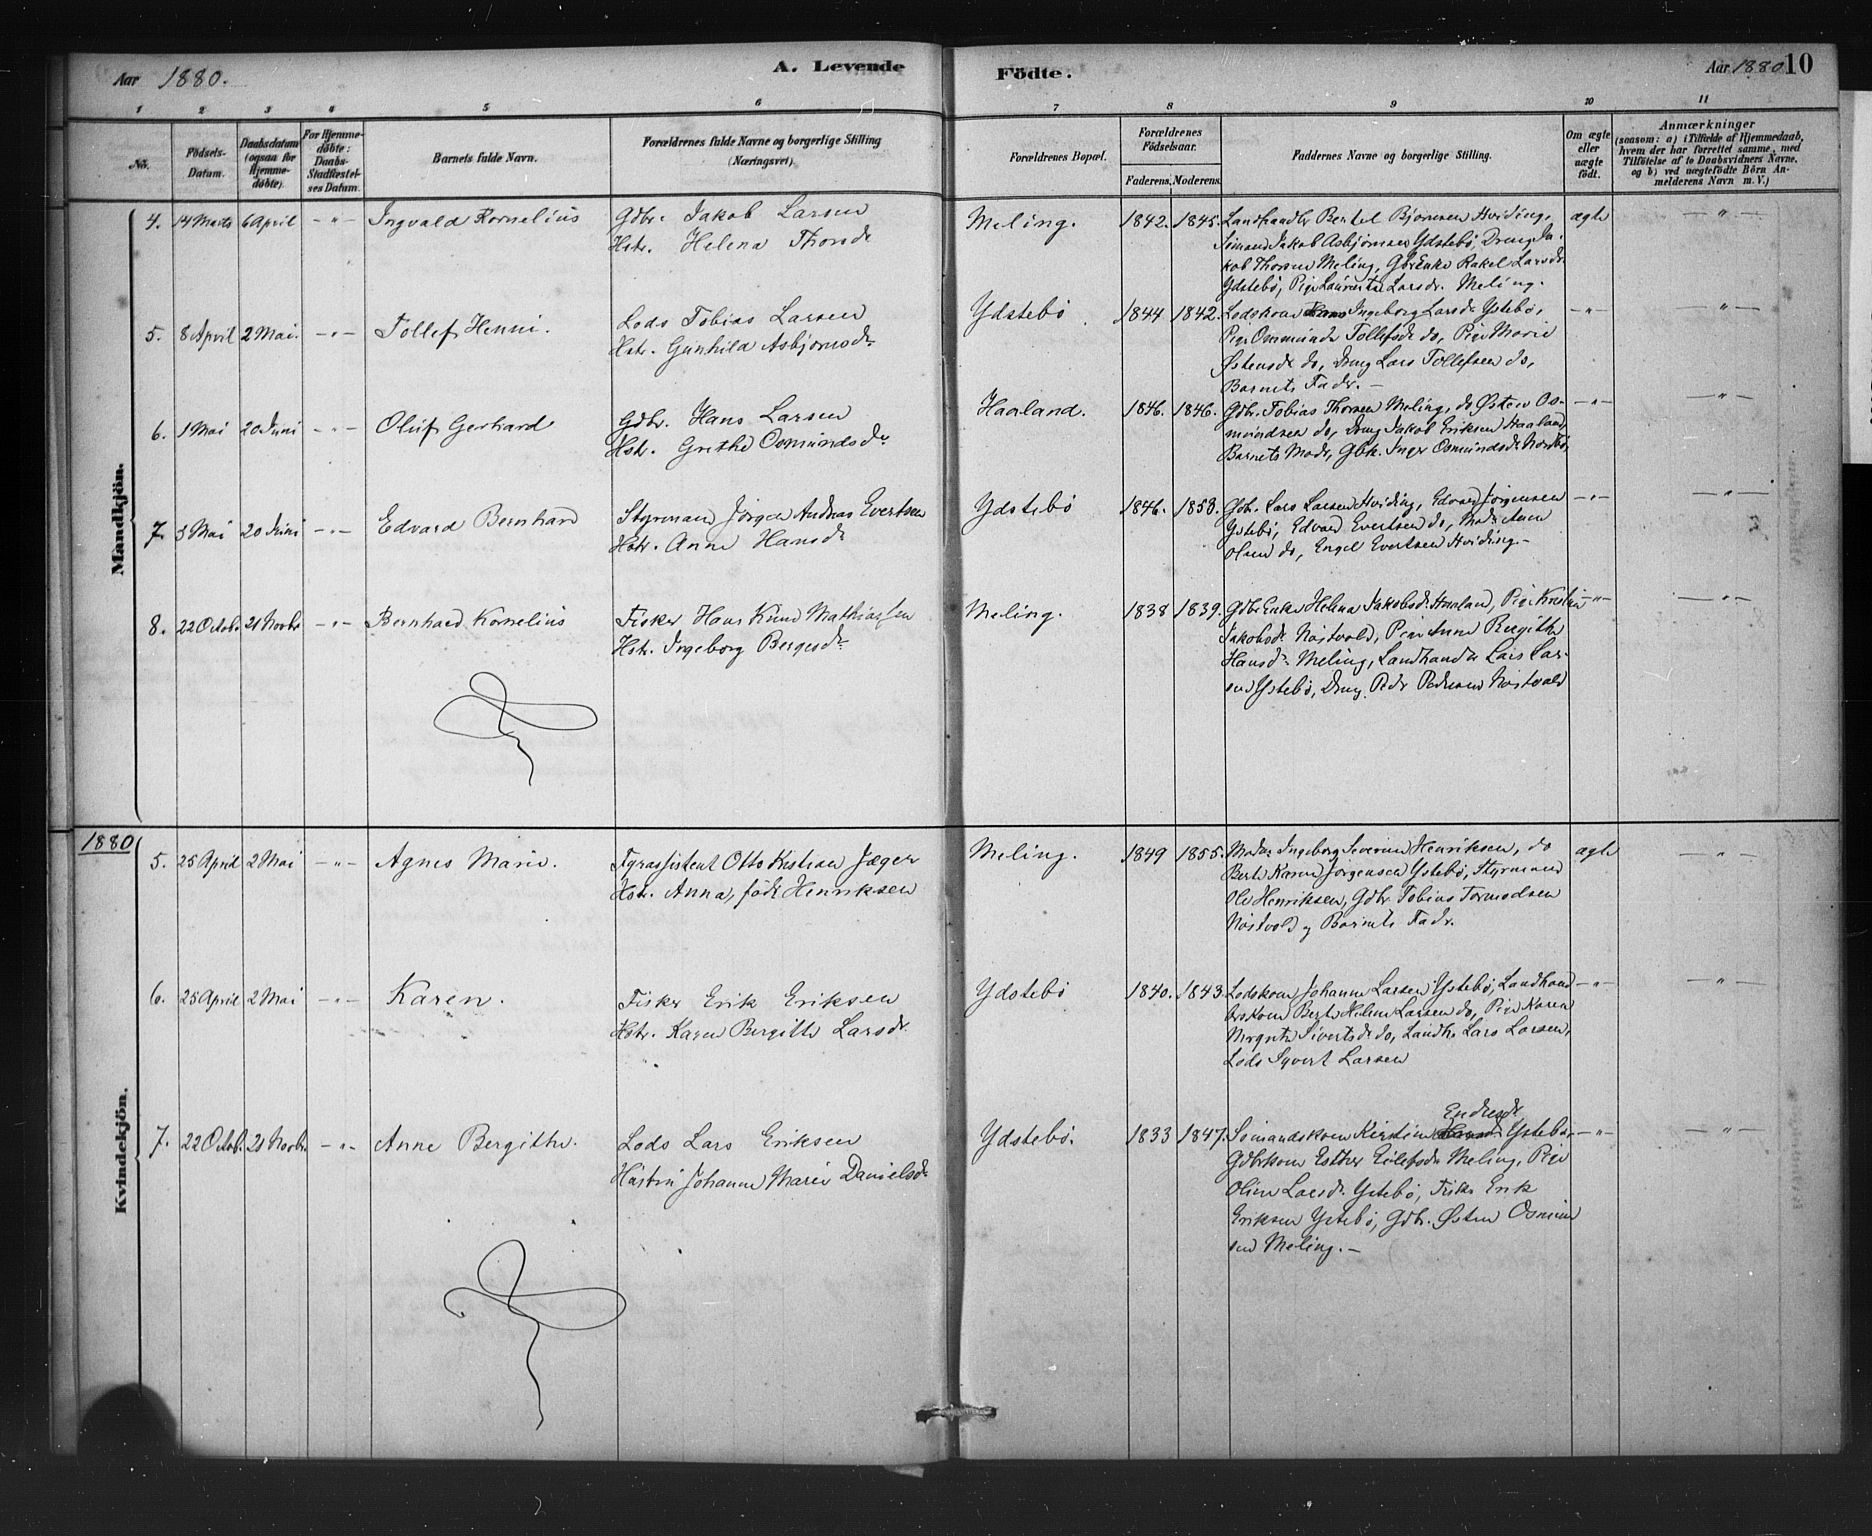 Aar 1880.
A. Levende
Födte.
Aar 1880 10
1 2 3 4 5 6 7 8 9 10 11
No.
Födsels-
Datum.
Daabsdatum
(ogsaa for
Hjemme-
döbte).
For Hjemme-
döbte:
Daabs-
Stadfæstel-
ses Datum.
Barnets fulde Navn.
Forældrenes fulde Navne og borgerlige Stilling
(Næringsvei).
Forældrenes Bopæl.
Forældrenes
Födselsaar.
Faderens. Moderens.
Faddernes Navne og borgerlige Stilling.
Om ægte
eller
uægte
födt.
Anmærkninger
(saasom: a) i Tilfælde af Hjemmedaab,
hvem der har forrettet samme, med
Tilföielse af to Daabsvidners Navne,
og b) ved uægtefödte Börn An-
melderens Navn m. V.)
Mandkjön.
4. 14 Marts 6 April - " - Ingvald Kornelius
Gdbr. Jakob Larsen
Hstr. Helena Thorsdr
Meling. 1842. 1845.
Landhandlr Bertel Bjørnsen Hviding,
Sømand Jakob Asbjørnsen Ydstebö, Dreng Ja-
kob Thorsen Meling, GbrEnke Rakel Larsdr
Ydstebö, Pige Laurentse Larsdr. Meling.
ægte - " -
5. 8 April 2 Mai. - " - Tollef Henni.
Lods Tobias Larsen
Hstr. Gunhild Asbjørnsdr
Ydstebö 1844 1842.
Lodskone Ingeborg Larsdr Ystebö,
Pige Osmunda Tollefsdr do, Pige Marie
Østensdr do, Dreng Lars Tollefsen do,
Barnets Fader. -
- " - - " -
6. 1 Mai 20 Juni - " - Oluf Gerhard
Gdbr. Hans Larsen
Hstr. Grethe Osmundsdr
Haaland. 1846. 1846.
Gdbr. Tobias Thorsen Meling, do Østen Os-
mundsen do, Dreng Jakob Eriksen Haaland,
Barnets Moder, Gbk. Inger Osmundsdr
- " - - " -
7. 3 Mai 20 Juni - " - Edvard Bernhard
Styrmand Jörgen Andreas Evertsen
Hstr. Anne Hansdr
Ydstebö 1846. 1853.
Gdbr. Lars Larsen Hviding, Edvard Jörgensen
Ystebö, Edvard Evertsen do, Madm Anne
Olsen do, Engel Evertsen Hviding. -
- " - - " -
8. 22 Octob. 21 Novbr - " - Bernhard Kornelius
Fisker Hans Knud Mathiassen
Hstr. Ingeborg Bergesdr
Meling. 1838 1839.
GdbrEnke Helena Jakobsdr Haaland, Pige Kristine
Jakobsdr Nöstvold, Pige Anne Bergitte
Hansdr Meling, Landhandlr Lars Lar-
sen Ystebö, Dreng Peder Pedersen Nöstvold
- " - - " -
1880
Kvindekjön.
5. 25 April 2 Mai - " - Agnes Marie.
Fyrassistent Otto Kistian Jæger
Hstr. Anna, født Henriksen
Meling. 1849 1855.
Madm Ingeborg Severine Henriksen, do
Berte Karine Jörgensen Ystebö, Styrmand
Ole Henriksen, Gdbr Tobias Tormodsen
Nöstvold og Barnets Fader.
ægte - " -
6. 25 April 2 Mai - " - Karen.
Fisker Erik Eriksen
Hstr. Karen Bergitte Larsdr.
Ydstebö 1840. 1843.
Lodskone Johanne Larsen Ystebö, Landhand-
lerskone Berte Helene Larsen do, Pige Karen
Mrgrete Sivertsdr do, Landhr Lars Larsen,
Lods Syvert Larsen
- " - - " -
7. 22 Octob. 21 Novbr. - " - Anne Bergitte.
Lods Lars Eriksen
Hustru Johanne Marie Danielsdr
Ydstebö. 1833 1847.
Endresdr
Sømandskone Kirstine Ystebö,
Gdbrkone Esther Eilefsdr Meling, Pige
Oline Larsdr Ystebö, Fisker Erik
Eriksen Ystebö, Gdbr. Østen Osmun
sen Meling. -
- " - - " -